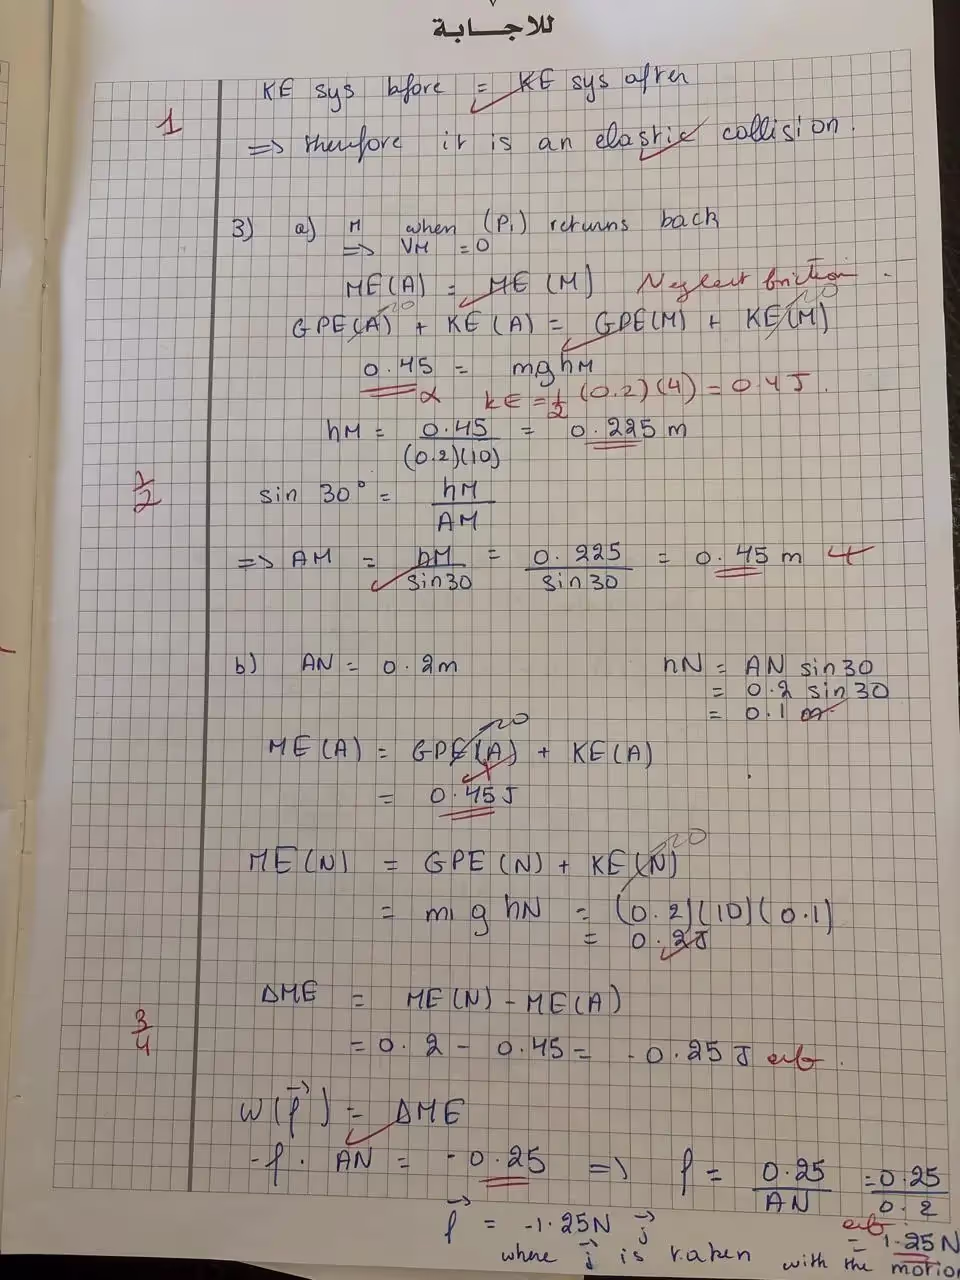 للاجـــابة
KE sys bfore = KE sys after
1
=> therefore it is an elastic collision.
3) a) M when (P₁) returns back
=> VM = 0
ME(A) = ME(M) Neglect friction.
GPE(A) + KE(A) = GPE(M) + KE(M)
0.45 = mghM
KE = 1/2 (0.2)(4) = 0.4 J.
hM = 0.45/(0.2)(10) = 0.225 m
1/2
sin 30° = hM/AM
=> AM = hM/sin30 = 0.225/sin30 = 0.45 m
b) AN = 0.2m
hN = AN sin30
= 0.2 sin30
= 0.1 m
ME(A) = GPE(A) + KE(A)
= 0.45J
ME(N) = GPE(N) + KE(N)
= m₁ g hN = (0.2)(10)(0.1)
= 0.2J
ΔME = ME(N) - ME(A)
3/4
= 0.2 - 0.45 = -0.25 J
W(f⃗) = ΔME
-f. AN = -0.25 => f = 0.25/AN = 0.25/0.2
= 1.25 N
f⃗ = -1.25N j⃗
where j⃗ is taken with the motion